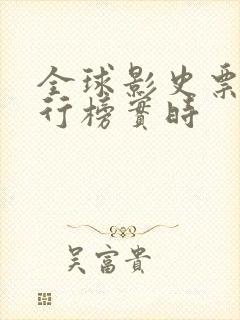 全球影史票
行榜實時
吳富貴